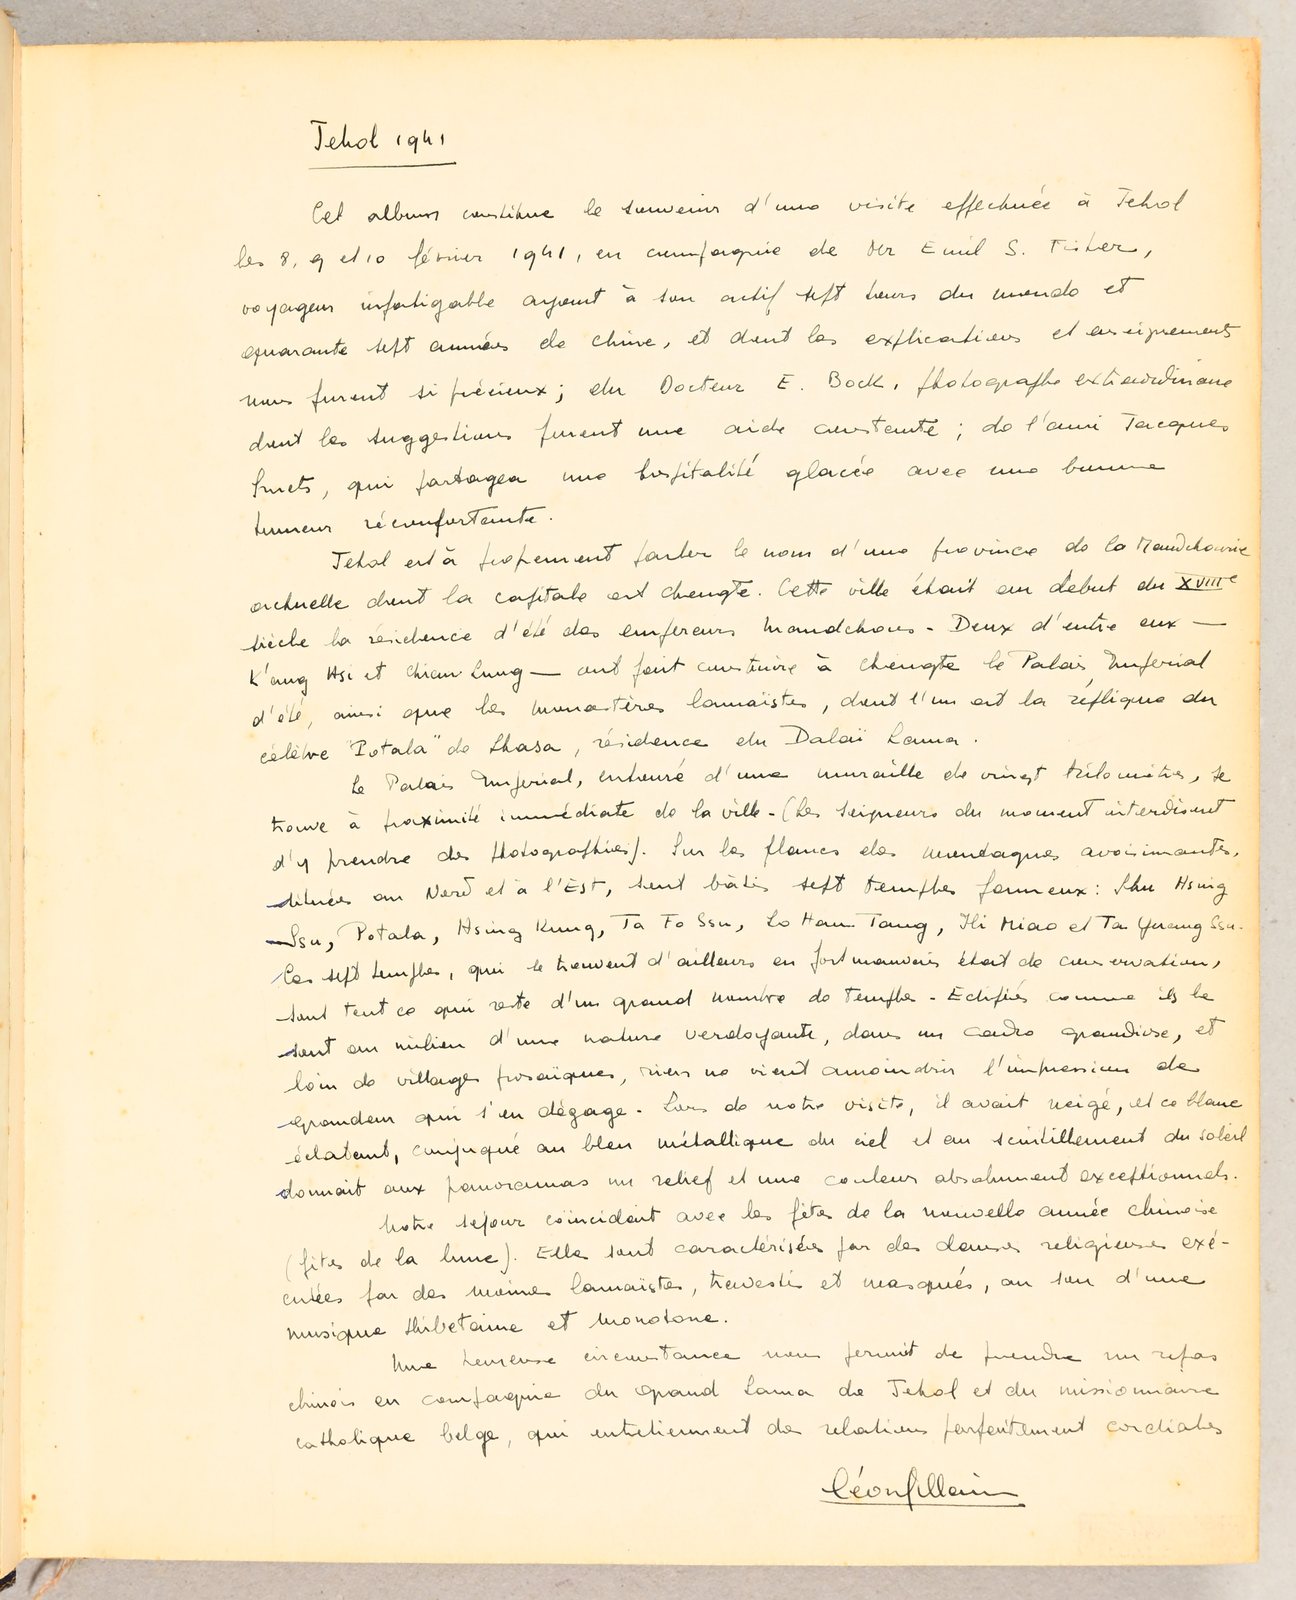 Jehol 1941
Cet album constitue le souvenir d'une visite effectuée à Jehol
les 8, 9 et 10 février 1941, en compagnie de Mr Emil S. Fisher,
voyageur infatigable ayant à son actif sept tours du monde et
quarante sept années de Chine, et dont les explications et enseignements
nous furent si précieux; du Docteur E. Bock, photographe extraordinaire
dont les suggestions furent une aide constante; de l'ami Jacques
Smets, qui partagea une hospitalité glacée avec une bonne
humeur réconfortante.
Jehol est à proprement parler le nom d'une province de la Mandchourie
actuelle dont la capitale est Chengte. Cette ville était au début du XVIIIe
siècle la résidence d'été des empereurs mandchous - Deux d'entre eux —
K'ang Hsi et Chian Lung — ont fait construire à Chengte le Palais Impérial
d'été, ainsi que les monastères lamaïstes, dont l'un est la réplique du
célèbre "Potala" de Lhasa, résidence du Dalaï Lama.
Le Palais Impérial, entouré d'une muraille de vingt kilomètres, se
trouve à proximité immédiate de la ville - (Les seigneurs du moment interdisent
d'y prendre des photographies). Sur les flancs des montagnes avoisinantes,
situées au Nord et à l'Est, sont bâtis sept temples fameux: Shu Hsing
Ssu, Potala, Hsing Kung, Ta Fo Ssu, Lo Han Tang, Ili Miao et Ta Yuang Ssu.
Ces sept temples, qui se trouvent d'ailleurs en fort mauvais état de conservation,
sont tout ce qui reste d'un grand nombre de temples - Edifiés comme ils le
sont au milieu d'une nature verdoyante, dans un cadre grandiose, et
loin de villages prosaïques, rien ne vient amoindrir l'impression de
grandeur qui s'en dégage - Lors de notre visite, il avait neigé, et ce blanc
éclatant, conjugué au bleu métallique du ciel et au scintillement du soleil
donnait aux panoramas un relief et une couleur absolument exceptionnels.
Notre séjour coïncidait avec les fêtes de la nouvelle année chinoise
(fêtes de la lune). Elles sont caractérisées par des danses religieuses exé-
cutées par des moines lamaïstes, travestis et masqués, au son d'une
musique thibétaine et monotone.
Une heureuse circonstance nous permit de prendre un repas
chinois en compagnie du Grand Lama de Jehol et du missionnaire
catholique belge, qui entretiennent des relations parfaitement cordiales